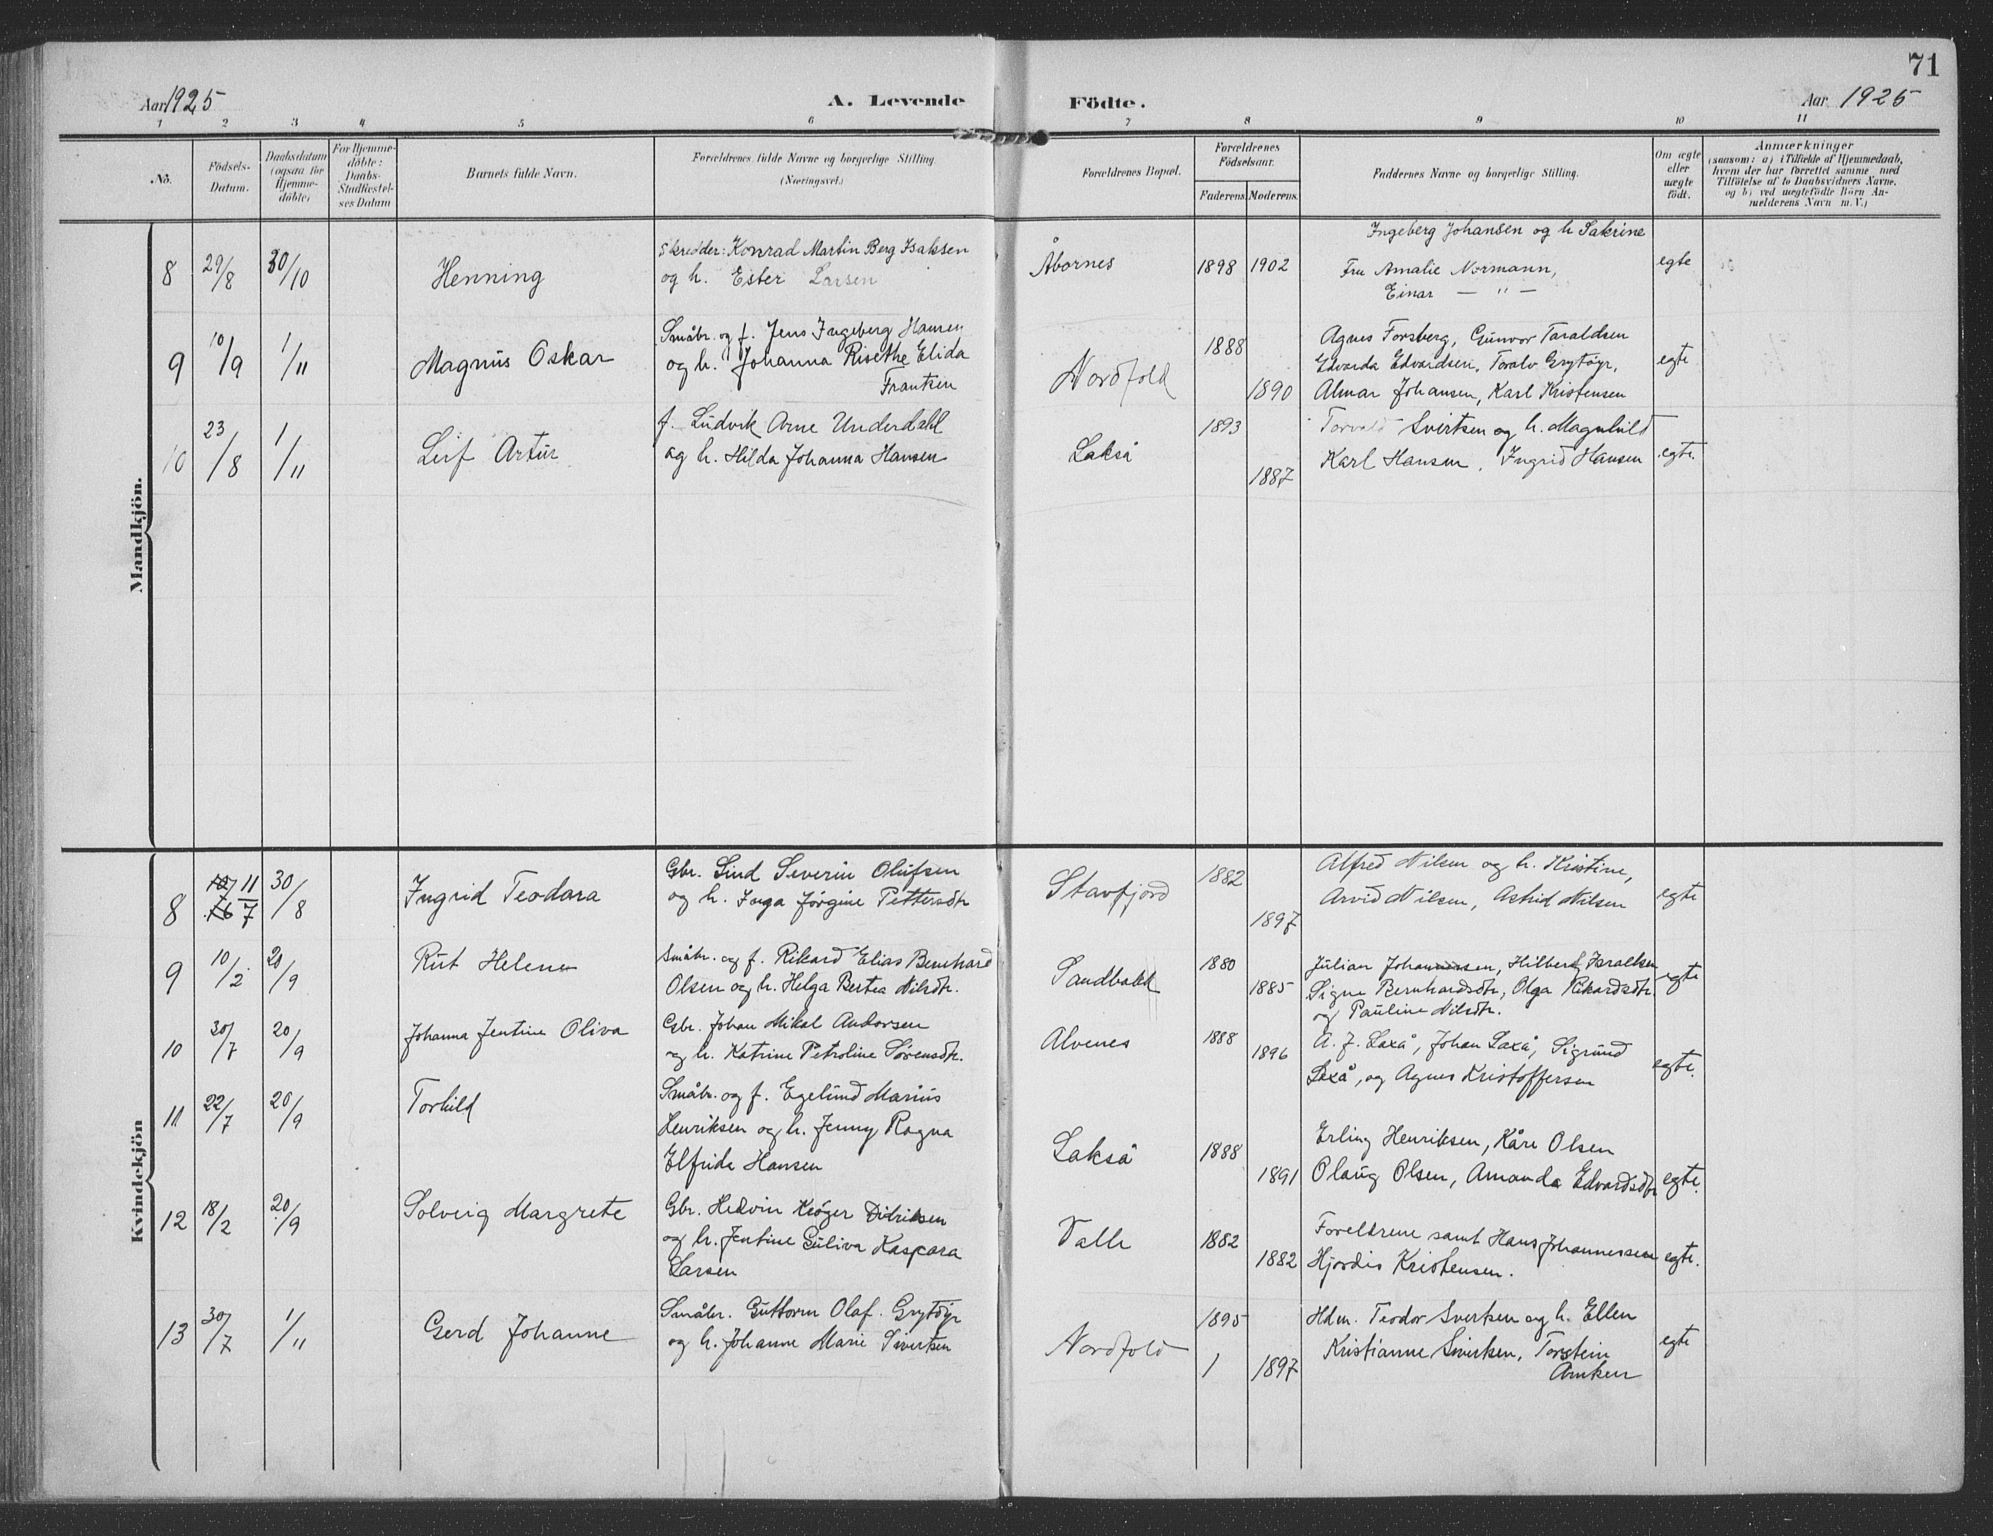 71
Aar 1925 A. Levende Födte. Aar 1925
1 2 3 4 5 6 7 8 9 10 11
No.
Födsels-Datum.
Daabsdatum (ogsaa for Hjemme-döbte)
For Hjemme-döbte: Daabs-Stadfæstel-ses Datum
Barnets fulde Navn.
Forældrenes fulde Navne og borgerlige Stilling.
(Næringsvei.)
Forældrenes Bopæl.
Forældrenes Födselsaar.
Faderens. Moderens.
Faddernes Navne og borgerlige Stilling.
Om ægte eller uægte födt.
Anmærkninger
(saasom: a) i Tilfælde af Hjemmedaab,
hvem der har forrettet samme med
Tilföielse af to Daabsvidners Navne.
og b) ved uægtefödte Börn An-
melderens Navn m. V.)
Mandkjön.
8 29/8 30/10 Henning
Skredder: Konrad Martin Berg Isaksen
og h. Ester Larsen
Åbornes 1898 1902
Ingeberg Johansen og h Sakrine
Fru Amalie Normann,
Einar — " —
egte
9 10/9 1/11 Magnus Oskar
Småbr. og f. Jens Ingeberg Hansen
og h. Johanna Risethe Elida
Frantsen
Nordfold 1888 1890
Agnes Forsberg, Gunvor Taraldsen
Edvarda Edvardsen, Toralv Grytöyr,
Almar Johansen, Karl Kristensen
egte
10 23/8 1/11 Leif Artur
f. Ludvik Arne Underdahl
og h. Hilda Johanna Hansen
Lakså 1893 1887
Torvald Svertsen og h. Magnhild
Karl Hansen, Ingrid Hansen
egte.
Kvindekjön
8 11/7 30/8 Ingrid Teodora
Gbr. Sind Severin Olufsen
og h. Inga Jørgine Pettersdtr
Stavfjord 1882 1897
Alfred Nilsen og h. Kristine,
Arvid Nilsen, Astrid Nilsen
egte
9 10/2 20/9 Rut Helene
Småbr. og f. Rikard Elias Bernhard
Olsen og h. Helga Bertea Nilsdtr.
Sandbakk 1880 1885
Julian Johannessen, Hilbert Israelsen
Signe Bernhardsdtr, Olga Rikardsdtr.
og Pauline Nilsdtr.
egte
10 30/7 20/9 Johanna Jentine Oliva
Gbr. Johan Mikal Andorsen
og h. Katrine Petroline Sørensdtr.
Alvenes 1888 1896
A. J. Laxå, Johan Laxå, Sigrund
Laxå, og Agnes Kristoffersen
egte.
11 22/7 20/9 Torhild
Småbr. og f. Egelund Marius
Henriksen og h. Jenny Ragna
Elfride Hansen
Lakså 1888 1891
Erling Henriksen, Kåre Olsen
Olaug Olsen, Amanda Edvardsdtr
egte.
12 18/2 20/9 Solveig Margrete
Gbr. Hedvin Krøger Didriksen
og h. Jentine Guliva Kaspara
Larsen
Valle 1882 1882
Foreldrene samt Hans Johannessen
Hjordis Kristensen.
egte.
13 30/7 1/11 Gerd Johanne
Småbr. Guttorm Olaf Grytöyr
og h. Johanne Marie Sivertsen
Nordfold 1895 1 1897
Hdm. Teodor Sverksen og h. Ellen
Kristianne Siverksen, Torstein
Arntsen
egte